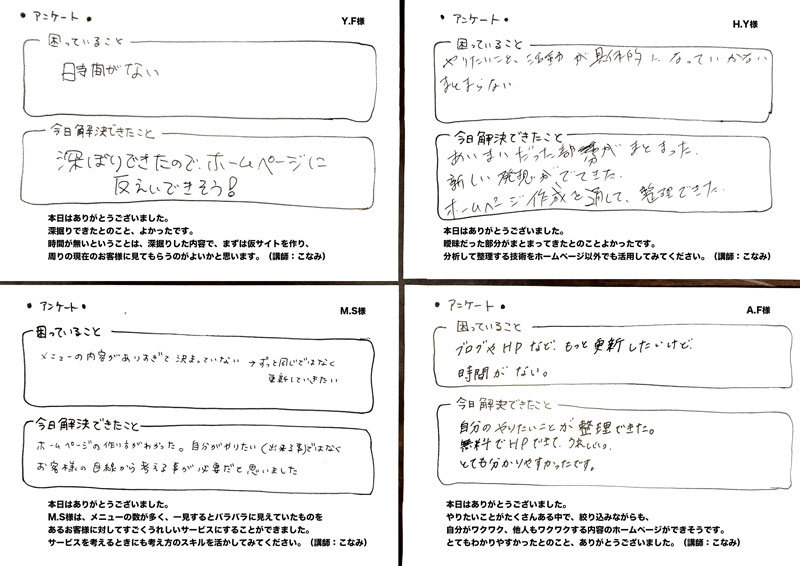 • アンケート •
Y.F様
困っていること
時間がない
今日解決できたこと
深ぼりできたので、ホームページに
反えいできそう!
本日はありがとうございました。
深掘りできたとのこと、よかったです。
時間が無いということは、深掘りした内容で、まずは仮サイトを作り、
周りの現在のお客様に見てもらうのがよいかと思います。（講師：こなみ）
• アンケート •
H.Y様
困っていること
やりたいこと、活動が具体的になっていかない
まとまらない
今日解決できたこと
あいまいだった部分がまとまった。
新しい発想がでてきた。
ホームページ作成を通して、整理できた。
本日はありがとうございました。
曖昧だった部分がまとまってきたとのことよかったです。
分析して整理する技術をホームページ以外でも活用してみてください。（講師：こなみ）
• アンケート •
M.S様
困っていること
メニューの内容がありすぎて決まっていない → ずっと同じではなく
更新していきたい
今日解決できたこと
ホームページの作り方がわかった。自分がやりたい(出来る事)ではなく
お客様の目線から考える事が必要だと思いました
本日はありがとうございました。
M.S様は、メニューの数が多く、一見するとバラバラに見えていたものを
あるお客様に対してすごくうれしいサービスにすることができました。
サービスを考えるときにも考え方のスキルを活かしてみてください。（講師：こなみ）
• アンケート •
A.F様
困っていること
ブログやHPなど、もっと更新したいけど、
時間がない。
今日解決できたこと
自分のやりたいことが整理できた。
無料でHPできて、うれしい。
とても分かりやすかったです。
本日はありがとうございました。
やりたいことがたくさんある中で、絞り込みながらも、
自分がワクワク、他人もワクワクする内容のホームページができそうです。
とてもわかりやすかったとのこと、ありがとうございました。（講師：こなみ）